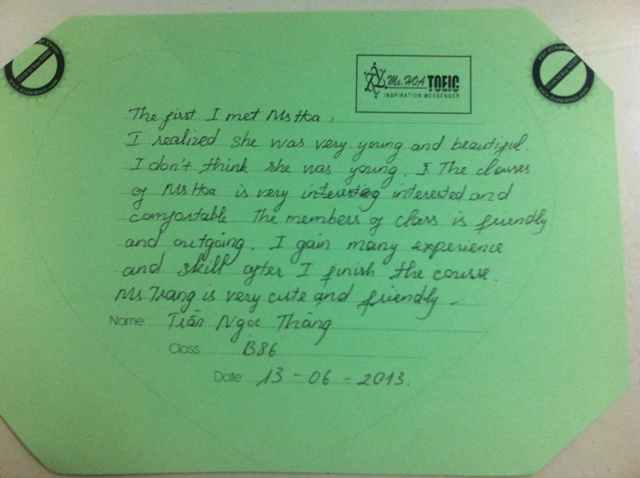 Ms. HOA TOEIC
INSPIRATION MESSENGER
The first I met Ms Hoa,
I realized she was very young and beautiful.
I don't think she was young. I The clauses
of Ms Hoa is very interesteg interested and
comfortable The members of class is friendly
and outgoing. I gain many experience
and skill after I finish the course.
Ms Trang is very cute and friendly -
Name: Trần Ngọc Thăng
Class: B86
Date: 13 - 06 - 2013.